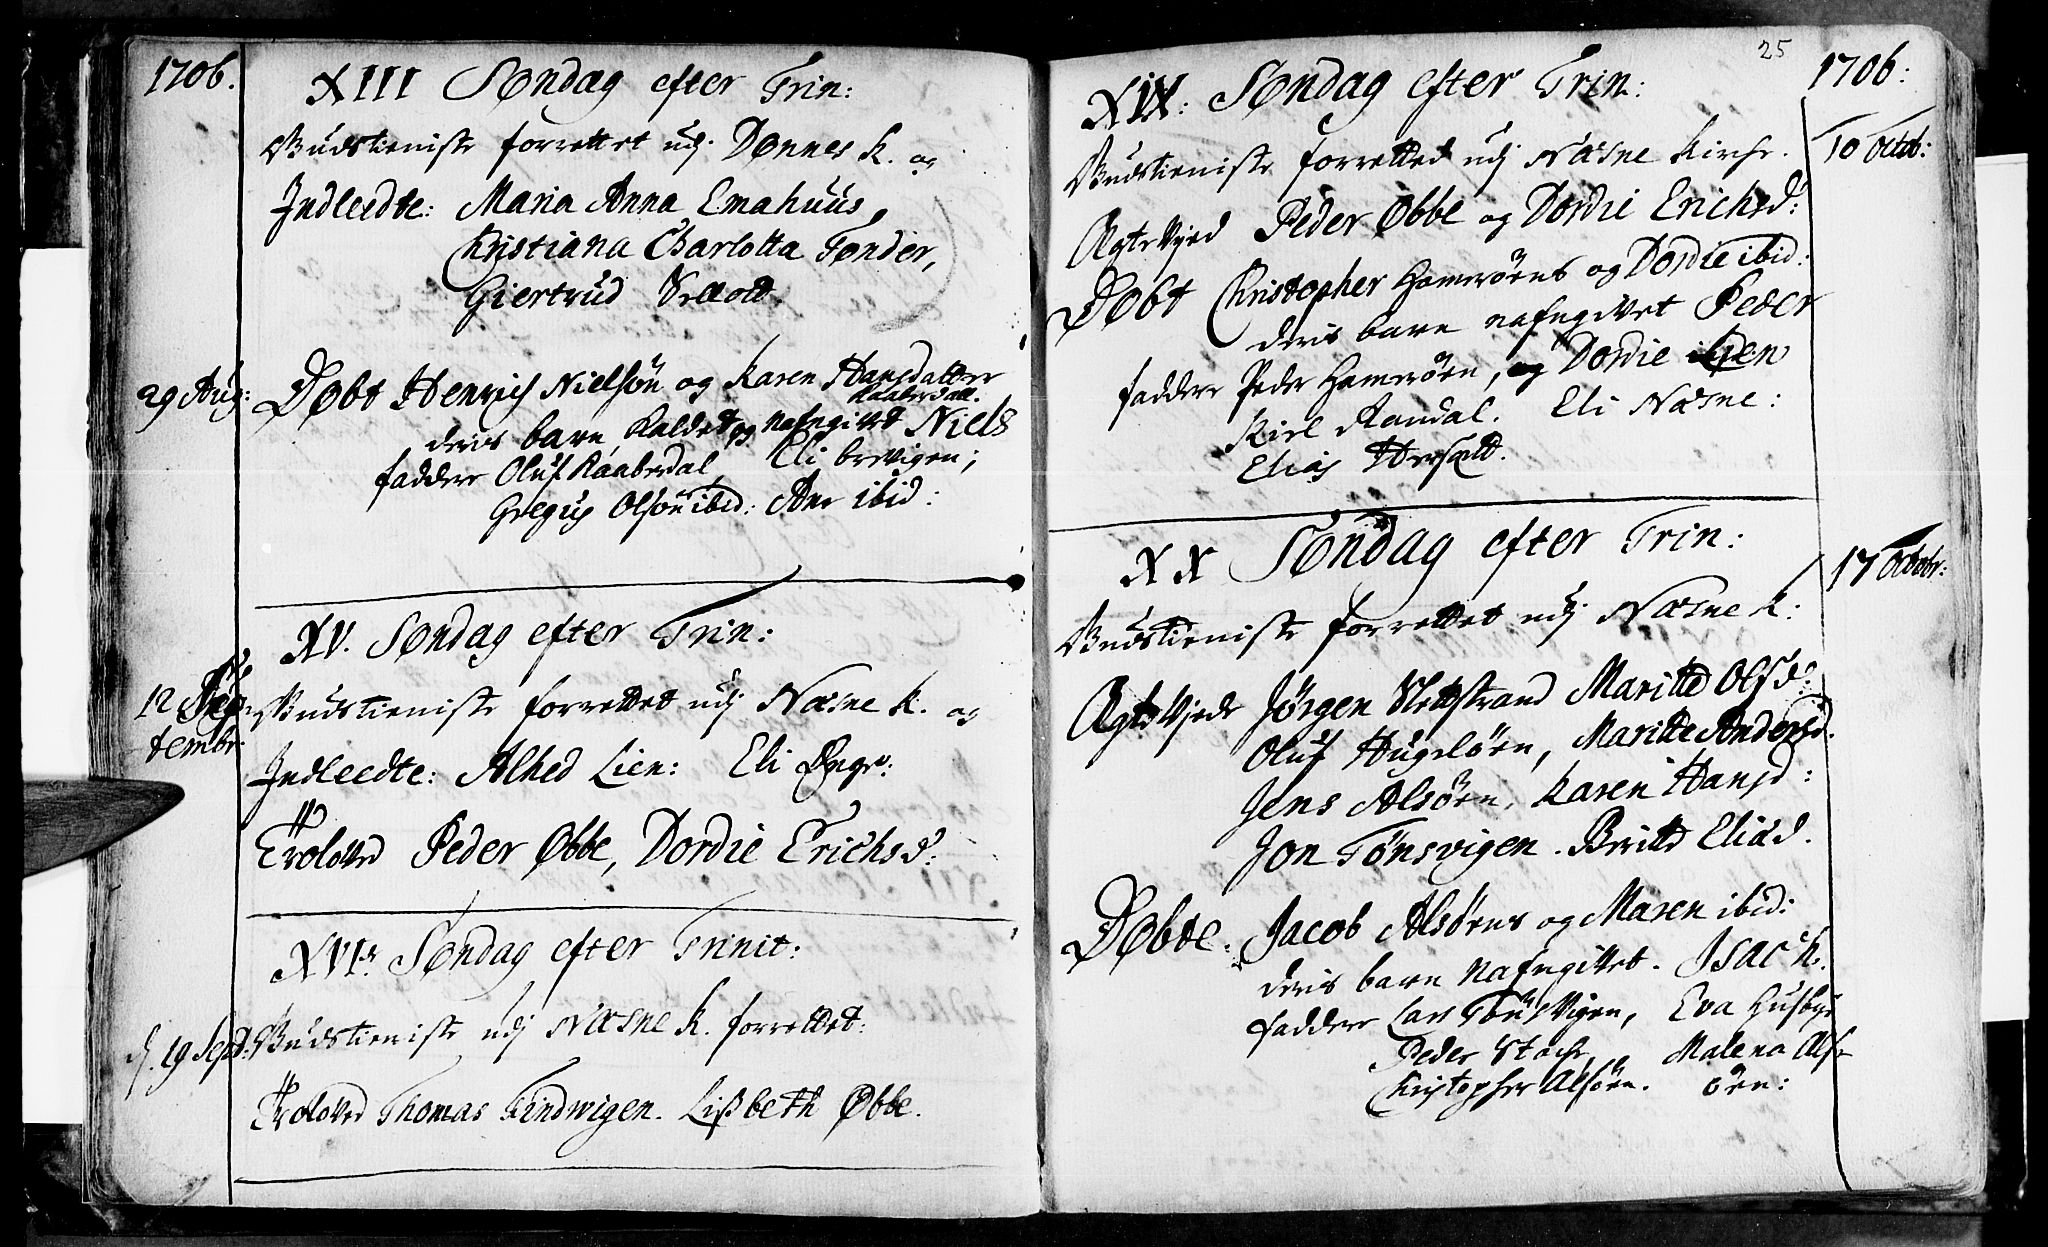 1706.
XIII Søndag efter Trin:
Gudstieniste forrettet udj Dønnes K. og
Indleedte: Maria Anna Emahuus,
Christiana Charlotta Tønder,
Giertrud
29 Aug:
Døbt Henrich Nielsøn og Karen Hansdatter
Raabesdal.
deris barn Kaldet og nafngivet Niels
faddere Oluf Raabesdal, Eli brevigen;
Gregus Olsøn ibid: Ane ibid:
XV. Søndag efter Trin:
12 Sep-
tembr.
Gudstieniste forrettet udj Næsne K. og
Indleedte: Alhed Lien: Eli
Troloved Peder Øbbe, Dordie Erichsd:
XVI. Søndag efter Trinit:
d. 19 Sept:
Gudstieniste udj Næsne K. forrettet:
Troloved Thomas Findwigen. Lißbeth Øbbe.
25
1706:
XIX: Søndag efter Trin:
10 Octob:
Gudstieniste forretted udj Næsne Kirche.
Ægtevied Peder Øbbe og Dordie Erichsd:
Døbt Christopher Hamerøens og Dordie ibid:
deris barn nafngivet Peder
faddere Peder Hamerøen, og Dordie ibid
Kield Randal. Eli Næsne:
Elias
XX Søndag efter Trin:
17 Octobr:
Gudstieniste forrettet udj Næsne K:
Ægteviede Jørgen Slettstrand Maritte Olsd:
Oluf Hugeløen, Maritte Andersd.
Jens Alsøen, Karen Hansd:
Jon Tønsvigen. Britte Eliæd.
Døbte: Jacob Alsøens og Maren ibid:
deris barn Nafngivet. Isach.
faddere Lars Tønsvigen, Eva Husbye
Peder Stoche Malena Als-
Christopher Alsøen. øen: